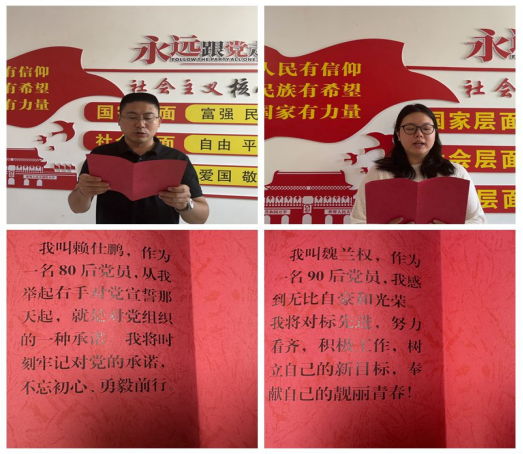 永远跟党走
FOLLOW THE PARTY ALL ONE
社会主义核
有信仰
有希望
有力量
国 面
富强 民
社 面
自由 平
爱国 敬
永远
人民有信仰
民族有希望
国家有力量
社会
国家层面
会层面
层面
我叫赖仕鹏，作为
一名 80 后党员，从我
举起右手对党宣誓那
天起，就是对党组织
的一种承诺。我将时
刻牢记对党的承诺，
不忘初心、勇毅前行。
我叫魏兰权，作为
一名 90 后党员，我感
到无比自豪和光荣。
我将对标先进，努力
看齐，积极工作，树
立自己的新目标，奉
献自己的靓丽青春！